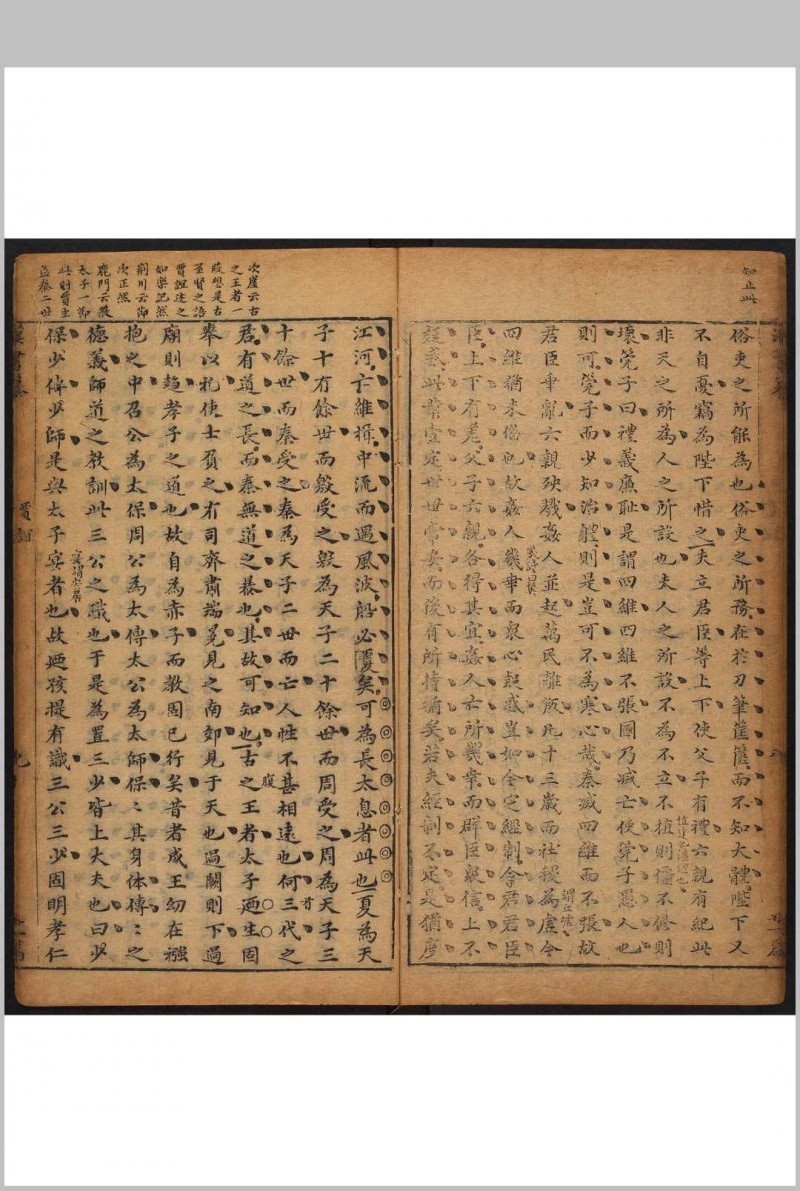 知止此
俗吏之所能為也俗吏之所務在於刀筆筐篋而不知大體陛下又
不自憂竊為陛下惜之夫立君臣等上下使父子有禮六親有紀此
非天之所為人之所設也夫人之所設不為不立不植則僵不修則
壞筦子曰禮義廉恥是謂四維四維不張國乃滅亡使筦子愚人也
則可筦子而少知治體則是豈可不為寒心哉秦滅四維而不張故
君臣乖亂六親殃戮姦人並起萬民離叛凡十三歲而社稷為虛今
四維猶未備也故姦人幾幸而眾心疑惑豈如今定經制令君君臣
臣上下有差父子六親各得其宜姦人亡所幾幸而群臣眾信上不
疑惑此業壹定世世常安而後有所持循矣若夫經制不定是猶度
次崖云古
之王者一
段想是古
至賢之語
賈誼述之
如樂記然
荊川云節
次正然
鹿門云教
太子一節
此則賈生
鑒秦二世
江河亡維楫中流而遇風波船必覆矣可為長太息者此也夏為天
子十有餘世而殷受之殷為天子二十餘世而周受之周為天子三
十餘世而秦受之秦為天子二世而亡人性不甚相遠也何三代之
君有道之長而秦無道之暴也其故可知也古之王者太子迺生固
舉以禮使士負之有司齊肅端冕見之南郊見于天也過闕則下過
廟則趨孝子之道也故自為赤子而教固已行矣昔者成王幼在襁
抱之中召公為太保周公為太傅太公為太師保〻其身体傅〻之
德義師道之教訓此三公之職也于是為置三少皆上大夫也曰少
保少傅少師是與太子宴者也故迺孩提有識三公三少固明孝仁
宴謂安居
賈誼